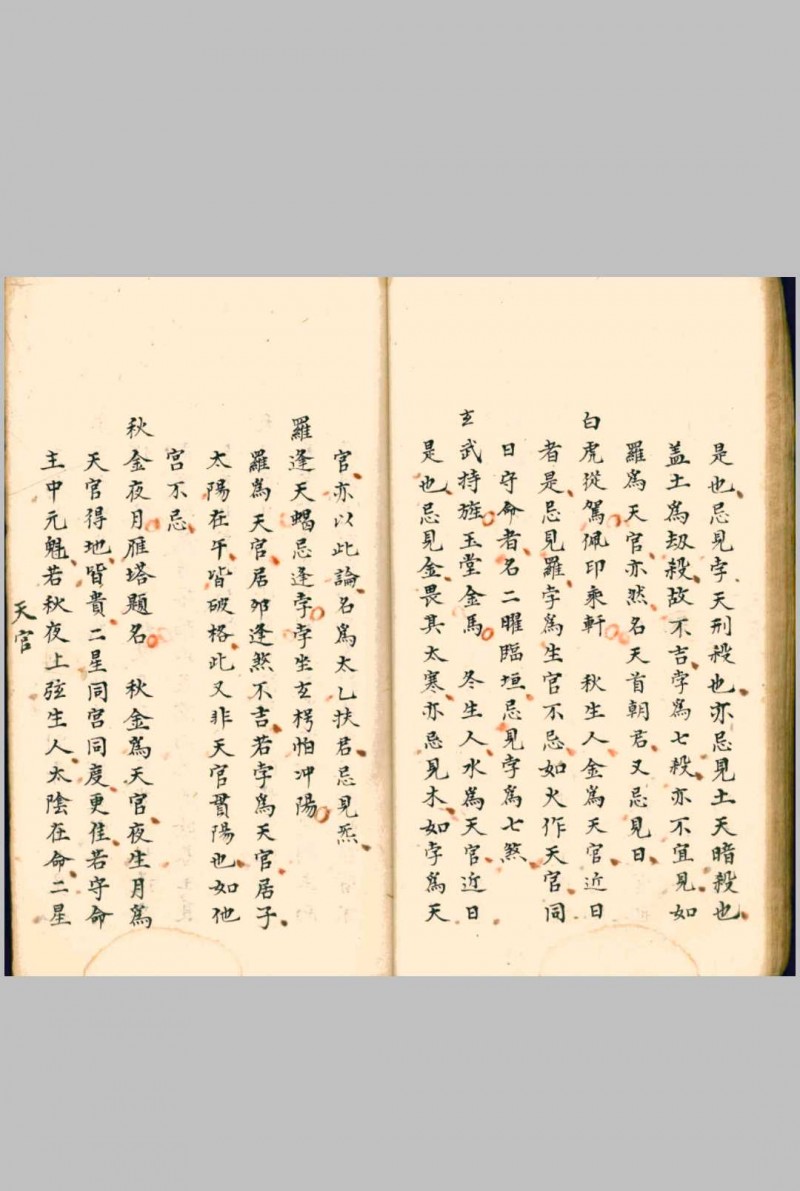 是也忌見孛天刑殺也亦忌見土天暗殺也
盖土為刼殺故不吉孛為七殺亦不宜見如
羅為天官亦然名天首朝君又忌見日
白虎從駕佩印乘軒　秋生人金為天官近日
者是忌見羅孛為生官不忌如火作天官同
日守命者名二曜臨垣忌見孛為七煞
玄武持旌玉堂金馬　冬生人水為天官近日
是也忌見金畏其太寒亦忌見木如孛為天
官亦以此論名為太乙扶君忌見炁
羅逢天蝎忌逢孛孛坐玄枵怕冲陽
羅為天官居卯逢煞不吉若孛為天官居子
太陽在午皆破格此又非天官貫陽也如他
宮不忌
秋金夜月雁塔題名　秋金為天官夜生月為
天官得地皆貴二星同宮同度更佳若守命
主中元魁若秋夜上弦生人太陰在命二星
天官